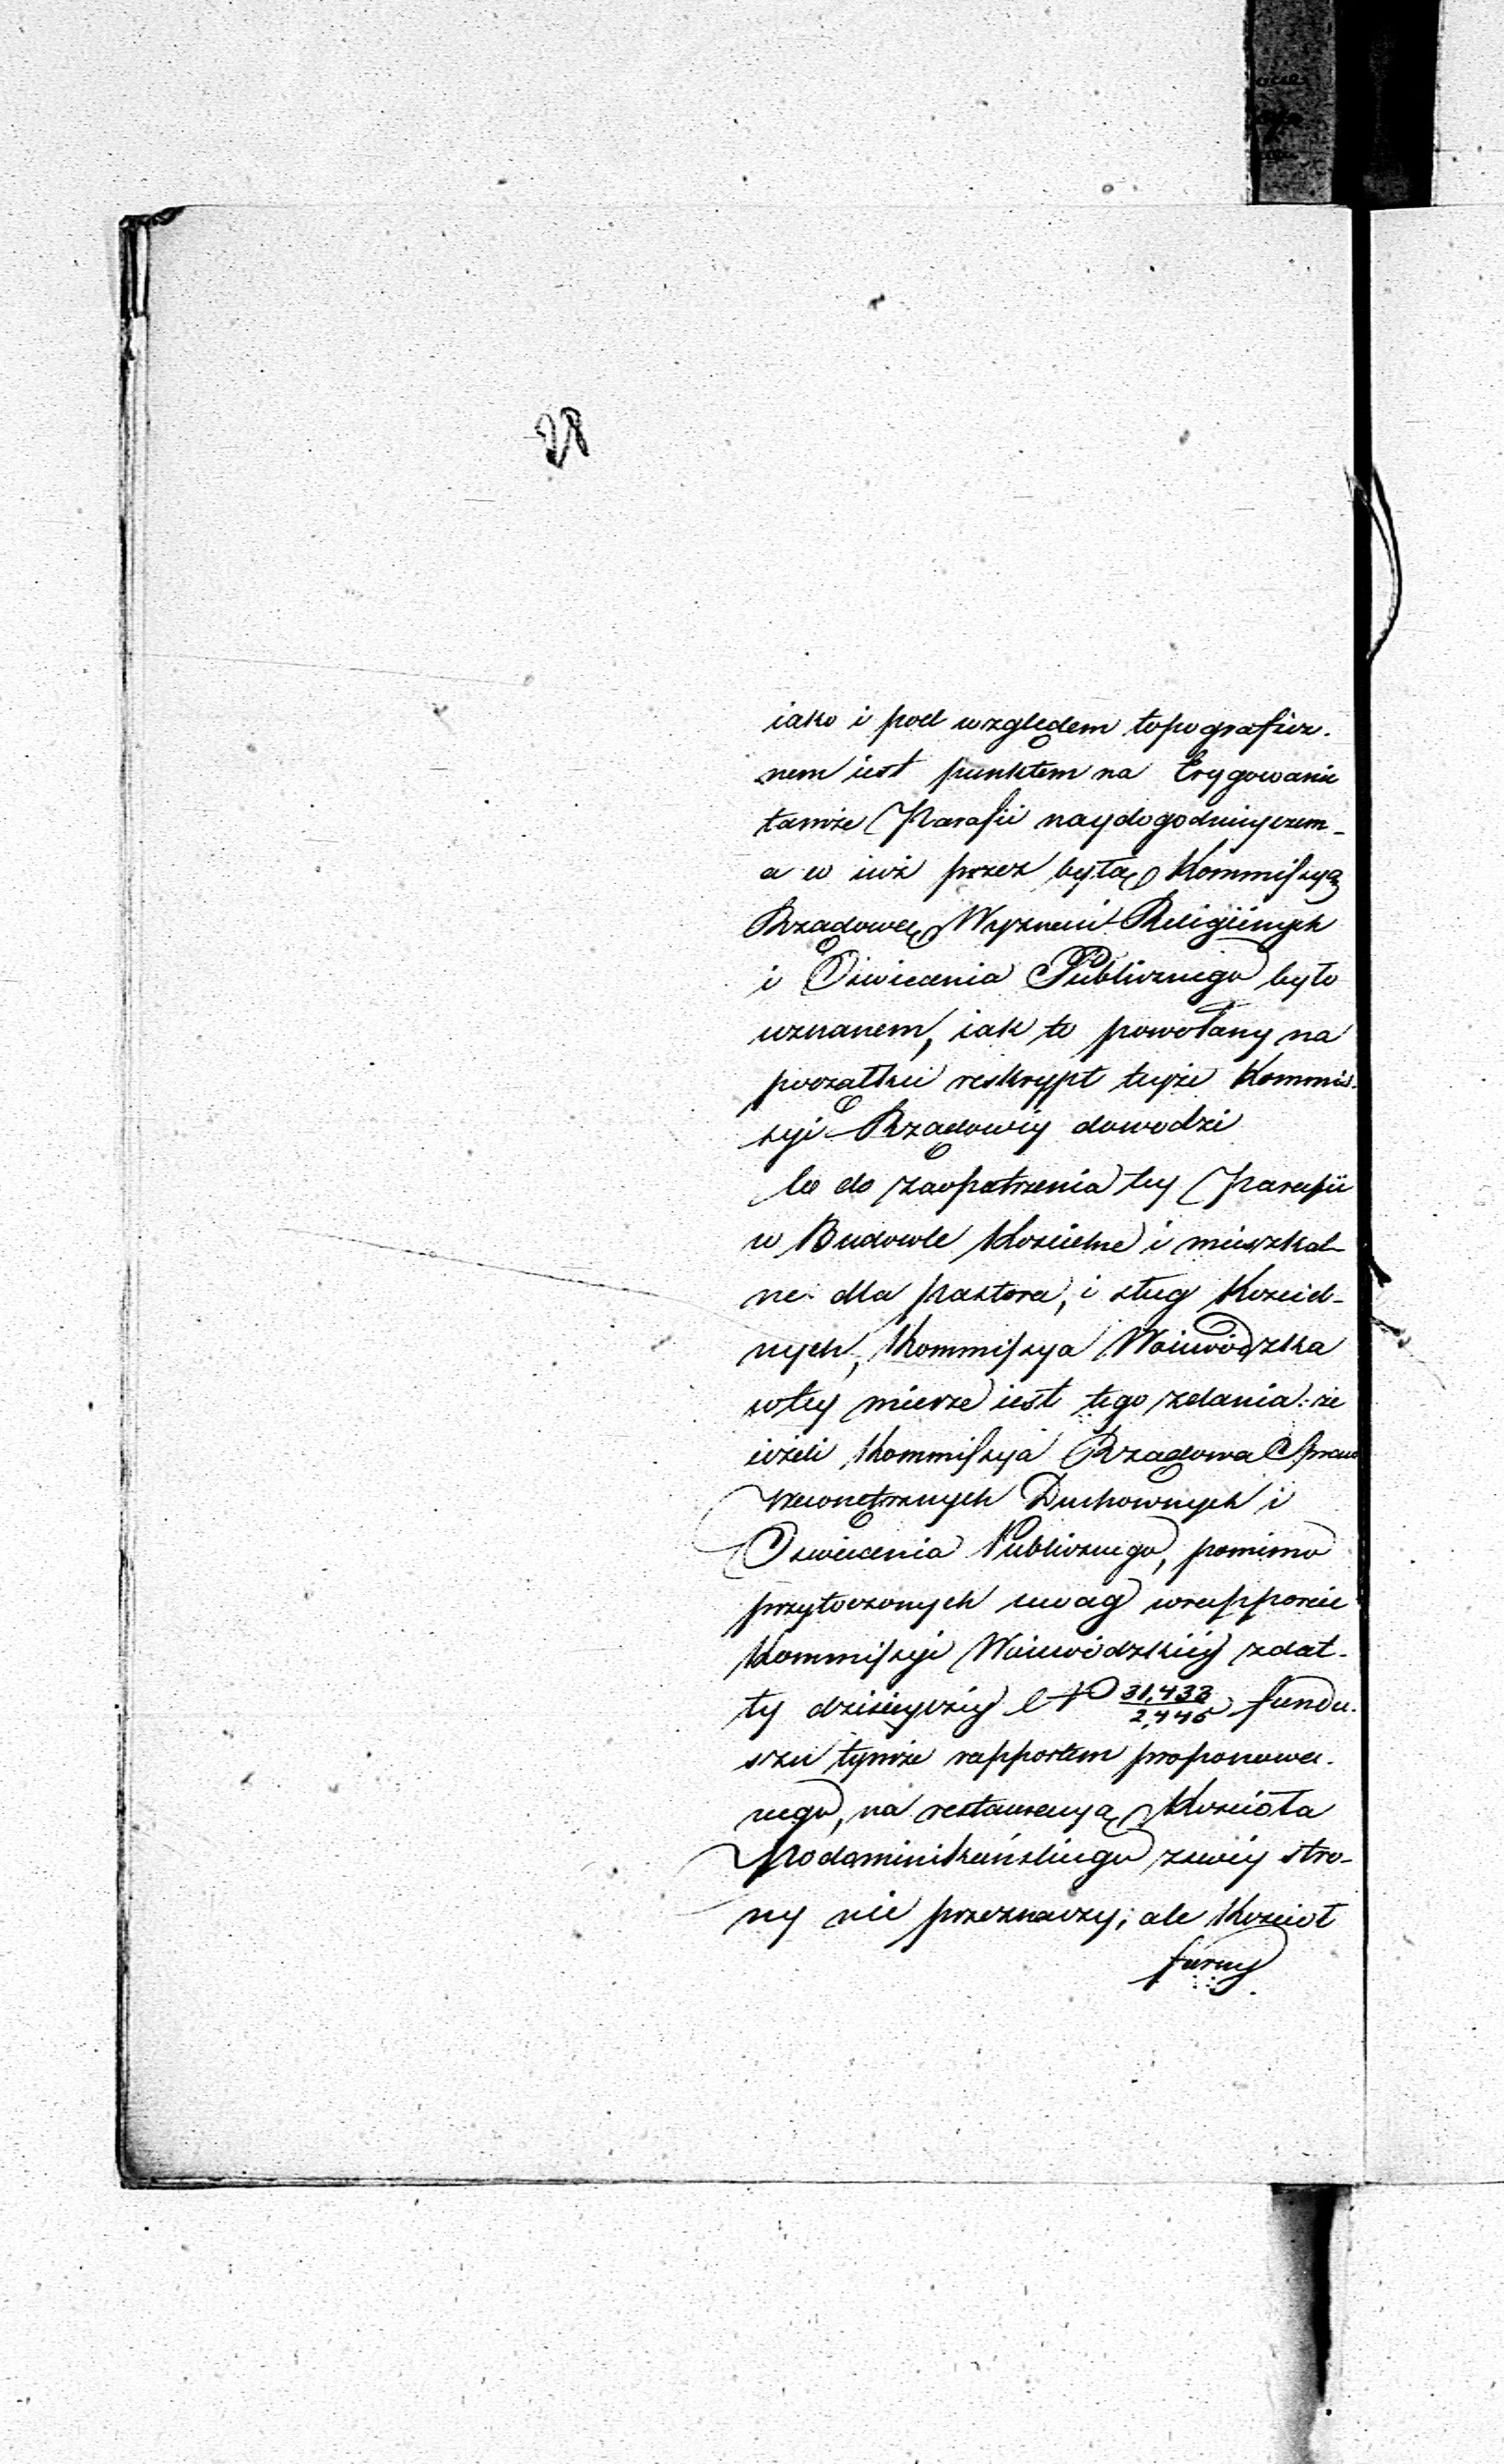 28
iako i pod względem topograficz-
nem iest punktem na Erygowanie
tamże Parafii naydogodnieyszem -
a co iuż przez byłą Kommissyą
Rządową Wyznań Religiinych
i Oświecenia Publicznego było
uznanem, iak to powołany na
początku reskrypt teyże Kommis-
syi Rządowéy dowodzi
Co do zaopatrzenia tey Parafii
w Budowle Kościelne i mieszkal-
ne dla pastora, i sług Kościel-
nych, Kommissya Woiewódzka
wtey mierze iest tego zdania: że
ieżeli Kommissya Rządowa Spraw
Wewnętrznych Duchownych i
Oświecenia Publicznego, pomimo
przytoczonych uwag wrapporcie
Kommissyi Woiewódzkiéy zdat-
ty dzisieyszéy N° 31,433/2,446 fundu-
szu tymże rapportem proponowa-
nego, na restauracyą Kościoła
Podominikańskiego zswéy stro-
ny nie przeznaczy; ale Kościoł
farny